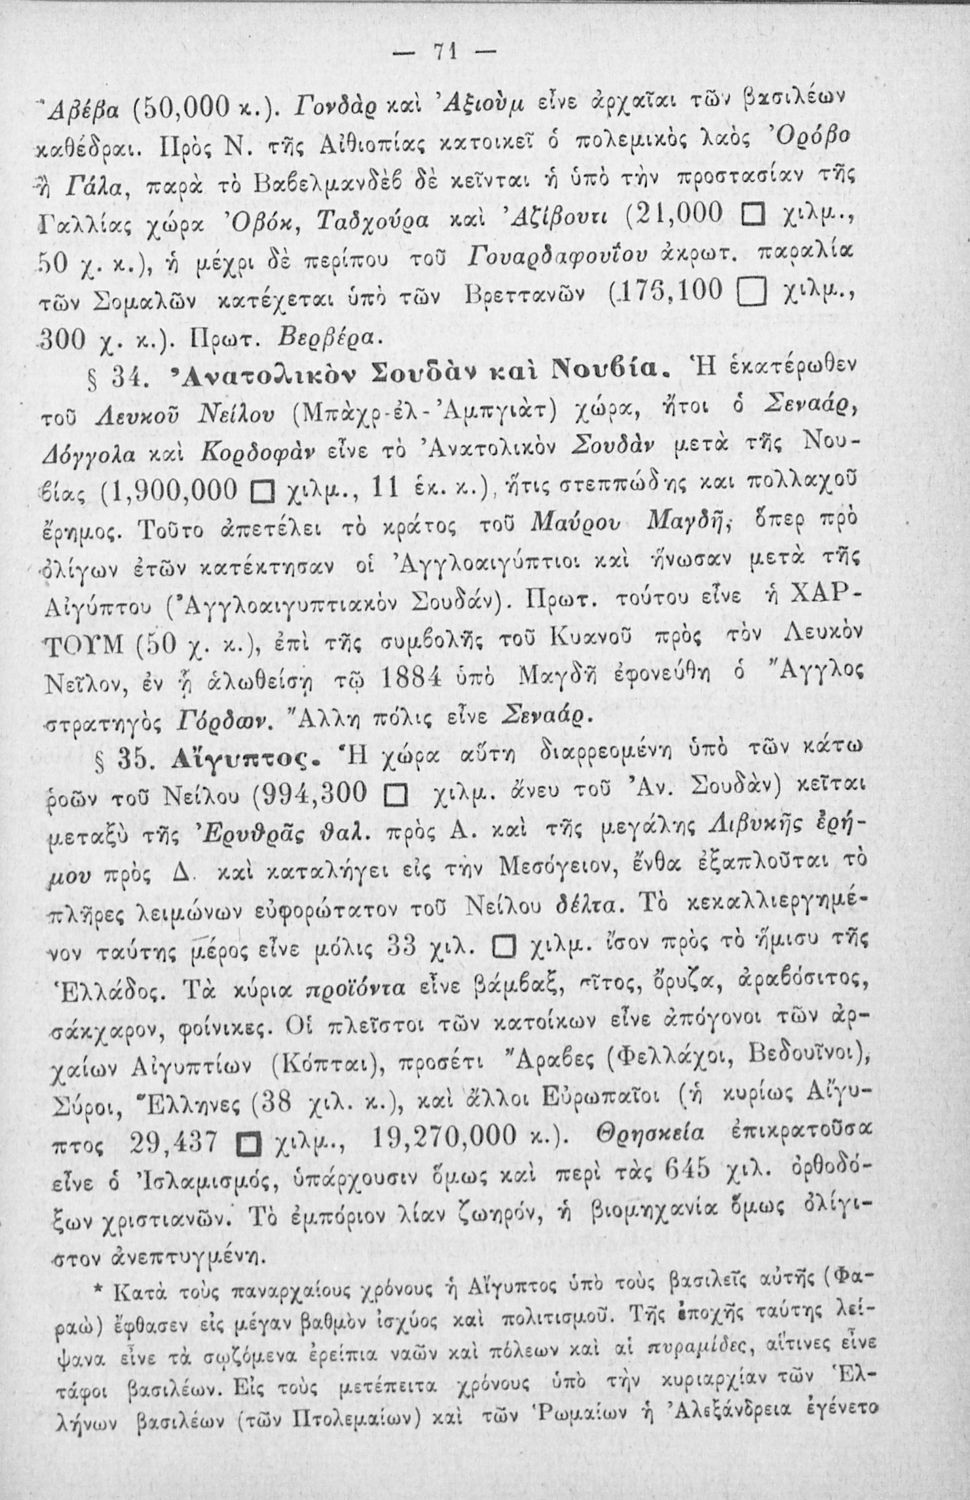 — 71 —
Ἀβέβα (50,000 κ.). Γονδὰρ καὶ Ἀξιοὺμ εἶνε ἀρχαῖαι τῶν βασιλέων
καθέδραι. Πρὸς Ν. τῆς Αἰθιοπίας κατοικεῖ ὁ πολεμικὸς λαὸς Ὀρόβο
ἢ Γάλα, παρὰ τὸ Βαβελμανδὲβ δὲ κεῖνται ἡ ὑπὸ τὴν προστασίαν τῆς
Γαλλίας χώρα Ὀβόκ, Ταδχούρα καὶ Ἀζίβουτι (21,000 □ χιλμ.,
50 χ. κ.), ἡ μέχρι δὲ περίπου τοῦ Γουαρδαφουΐου ἀκρωτ. παραλία
τῶν Σομαλῶν κατέχεται ὑπὸ τῶν Βρεττανῶν (176,100 □ χιλμ.,
300 χ. κ.). Πρωτ. Βερβέρα.
§ 34. Ἀνατολικὸν Σουδὰν καὶ Νουβία. Ἡ ἑκατέρωθεν
τοῦ Λευκοῦ Νείλου (Μπὰχρ-ἐλ-Ἀμπγιὰτ) χώρα, ἤτοι ὁ Σεναάρ,
Δόγγολα καὶ Κορδοφὰν εἶνε τὸ Ἀνατολικὸν Σουδὰν μετὰ τῆς Νου-
βίας (1,900,000 □ χιλμ., 11 ἑκ. κ.), ἥτις στεππώδης και πολλαχοῦ
ἔρημος. Τοῦτο ἀπετέλει τὸ κράτος τοῦ Μαύρου Μαγδῆ, ὅπερ πρὸ
ὀλίγων ἐτῶν κατέκτησαν οἱ Ἀγγλοαιγύπτιοι καὶ ἥνωσαν μετὰ τῆς
Αἰγύπτου (Ἀγγλοαιγυπτιακὸν Σουδάν). Πρωτ. τούτου εἶνε ἡ ΧΑΡ-
ΤΟΥΜ (50 χ. κ.), ἐπὶ τῆς συμβολῆς τοῦ Κυανοῦ πρὸς τὸν Λευκὸν
Νεῖλον, ἐν ᾗ ἁλωθείσῃ τῷ 1884 ὑπὸ Μαγδῆ ἐφονεύθη ὁ Ἄγγλος
στρατηγὸς Γόρδων. Ἄλλη πόλις εἶνε Σεναάρ.
§ 35. Αἴγυπτος. Ἡ χώρα αὕτη διαρρεομένη ὑπὸ τῶν κάτω
ῥοῶν τοῦ Νείλου (994,300 □ χιλμ. ἄνευ τοῦ Ἀν. Σουδὰν) κεῖται
μεταξὺ τῆς Ἐρυθρᾶς θαλ. πρὸς Α. καὶ τῆς μεγάλης Λιβυκῆς ἐρή-
μου πρὸς Δ. καὶ καταλήγει εἰς τὴν Μεσόγειον, ἔνθα ἐξαπλοῦται τὸ
πλῆρες λειμώνων εὐφορώτατον τοῦ Νείλου δέλτα. Τὸ κεκαλλιεργημέ-
νον ταύτης μέρος εἶνε μόλις 33 χιλ. □ χιλμ. ἴσον πρὸς τὸ ἥμισυ τῆς
Ἑλλάδος. Τὰ κύρια προϊόντα εἶνε βάμβαξ, σῖτος, ὄρυζα, ἀραβόσιτος,
σάκχαρον, φοίνικες. Οἱ πλεῖστοι τῶν κατοίκων εἶνε ἀπόγονοι τῶν ἀρ-
χαίων Αἰγυπτίων (Κόπται), προσέτι Ἄραβες (Φελλάχοι, Βεδουῖνοι),
Σύροι, Ἕλληνες (38 χιλ. κ.), καὶ ἄλλοι Εὐρωπαῖοι (ἡ κυρίως Αἴγυ-
πτος 29,437 □ χιλμ., 19,270,000 κ.). Θρησκεία ἐπικρατοῦσα
εἶνε ὁ Ἰσλαμισμός, ὑπάρχουσιν ὅμως καὶ περὶ τὰς 645 χιλ. ὀρθοδό-
ξων χριστιανῶν. Τὸ ἐμπόριον λίαν ζωηρόν, ἡ βιομηχανία ὅμως ὀλίγι-
στον ἀνεπτυγμένη.
* Κατὰ τοὺς παναρχαίους χρόνους ἡ Αἴγυπτος ὑπὸ τοὺς βασιλεῖς αὐτῆς (Φα-
ραὼ) ἔφθασεν εἰς μέγαν βαθμὸν ἰσχύος καὶ πολιτισμοῦ. Τῆς ἐποχῆς ταύτης λεί-
ψανα εἶνε τὰ σῳζόμενα ἐρείπια ναῶν καὶ πόλεων καὶ αἱ πυραμίδες, αἵτινες εἶνε
τάφοι βασιλέων. Εἰς τοὺς μετέπειτα χρόνους ὑπὸ τὴν κυριαρχίαν τῶν Ἑλ-
λήνων βασιλέων (τῶν Πτολεμαίων) καὶ τῶν Ῥωμαίων ἡ Ἀλεξάνδρεια ἐγένετο